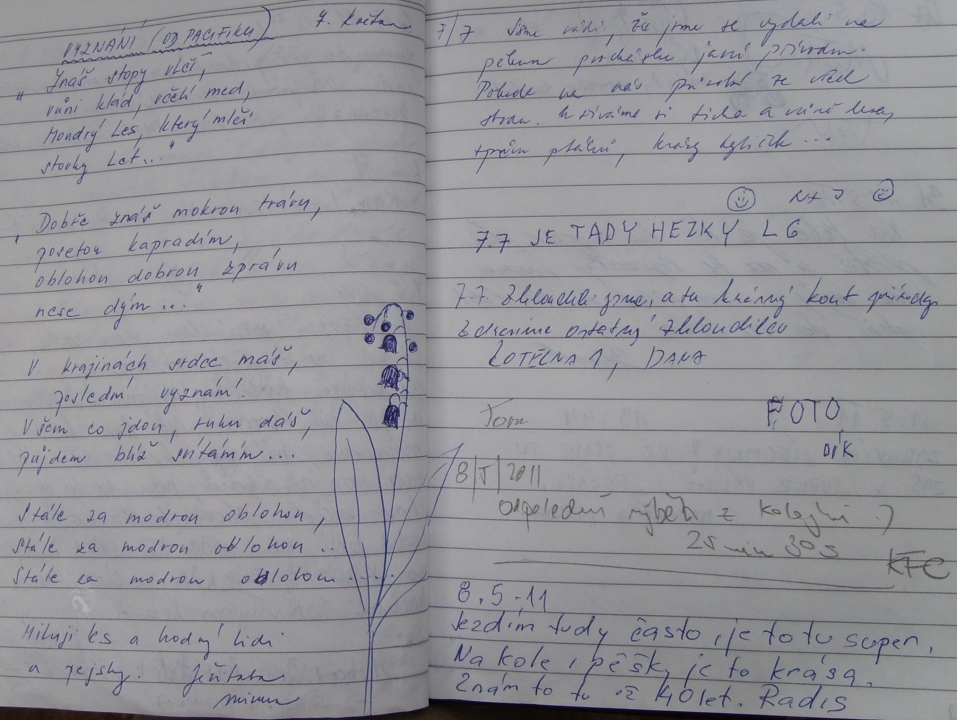 7. květen
VYZNÁNÍ (OD PACIFIKU)
„Znáš stopy vlčí,
vůni klád, včelí med,
Moudrý Les, který mlčí
stovky Let..."
„Dobře znáš mokrou trávu,
posetou kapradím,
oblohou dobrou zprávu
nese dým..."
V krajinách srdce máš,
poslední vyznání!
Všem co jdou, ruku dáš,
půjdem blíž svítáním...
Stále za modrou oblohou,
Stále za modrou oblohou...
Stále za modrou oblohou....
Miluji les a hodný lidi
a pejsky.
7/7 Jsme rádi, že jsme se vydali na
pěknou procházku jarní přírodou.
na nás ze všech
stran. si ticha a vůně lesa,
zpěvu ptáků, krásy kytiček...
7.7 JE TADY HEZKY LG
7.7. Zbloudili jsme, a tu krásný kout přírody.
Zdravíme ostatný zbloudilce
DANA
FOTO
DÍK
8/5/2011
odpolední výběh z kolejní :)
25 min 30 s
KFC
8.5.11
Jezdím tudy často, je to tu super.
Na kole i pěšky je to krása.
Znám to tu už 40 let. Radis